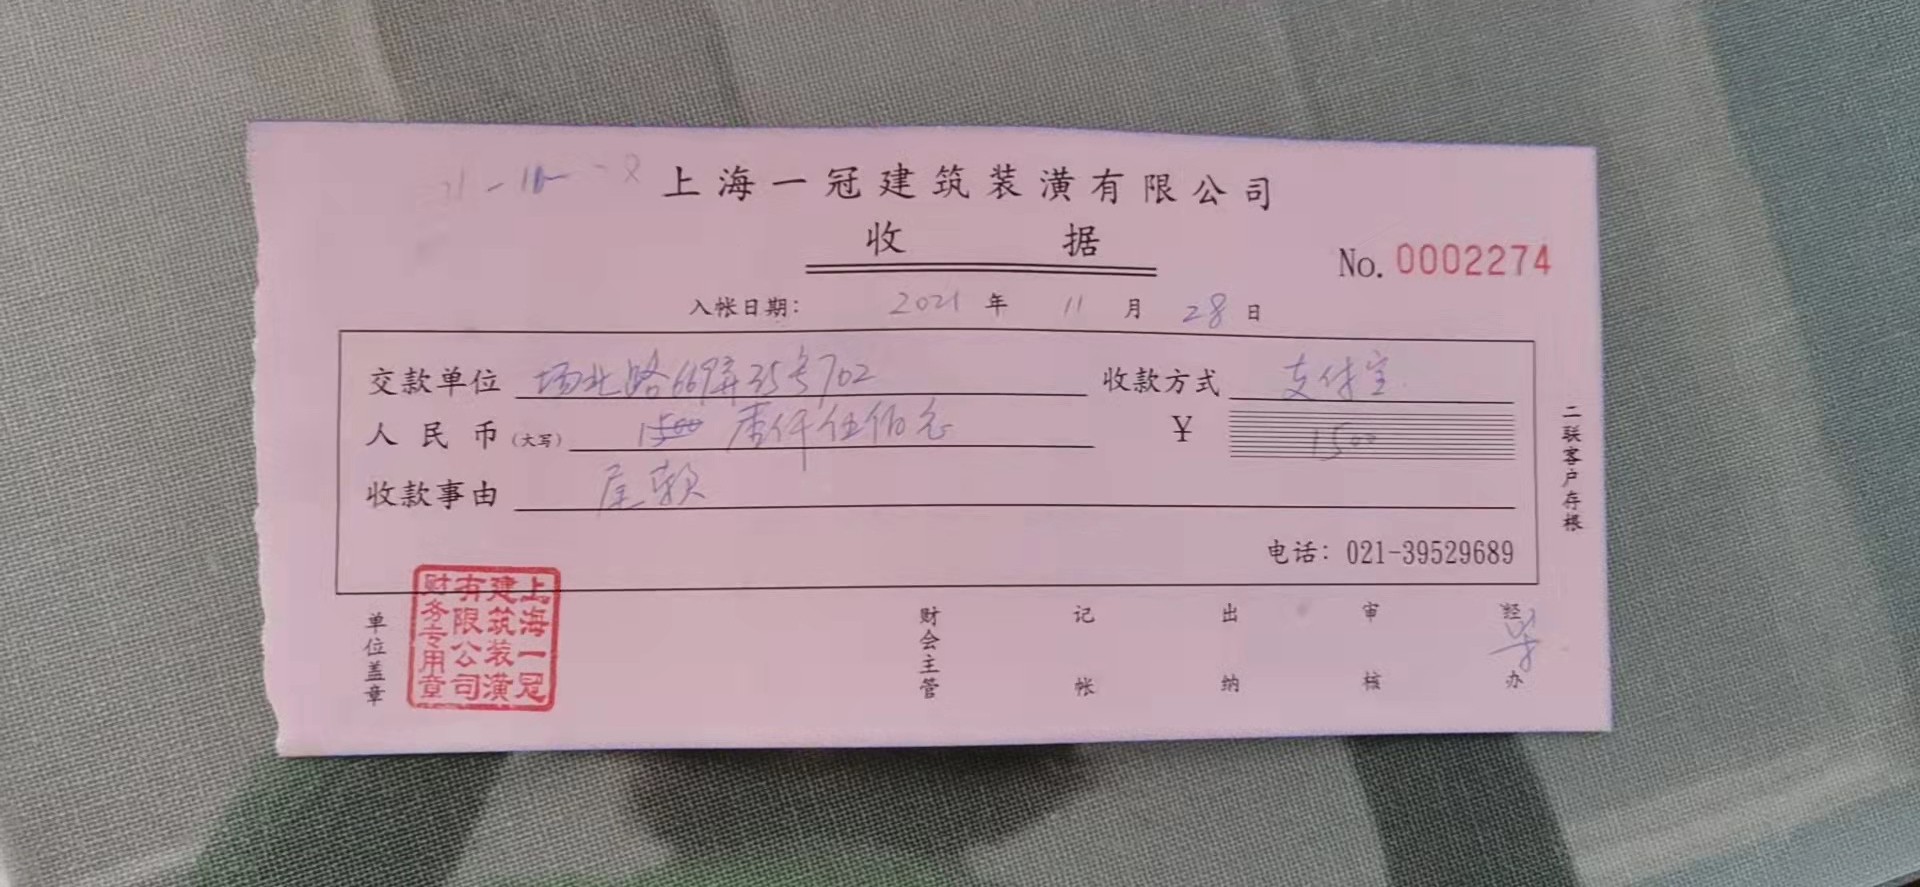 上海一冠建筑装潢有限公司
收据
No. 0002274
入帐日期： 2021 年 11 月 28 日
交款单位 场北路669弄35号702 收款方式 支付宝
人民币（大写） 1500 壹仟伍佰元 ¥ 1500
收款事由 尾款
电话：021-39529689
二联客户存根
单位盖章 财会主管 记帐 出纳 审核 经办
上海一冠建筑装潢有限公司财务专用章